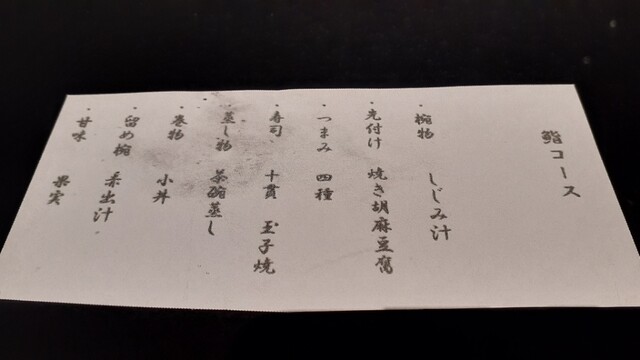 鮨コース
・椀物 しじみ汁
・先付け 焼き胡麻豆腐
・つまみ 四種
・寿司 十貫 玉子焼
・蒸し物 茶碗蒸し
・巻物 小丼
・留め椀 素出汁
・甘味 果実